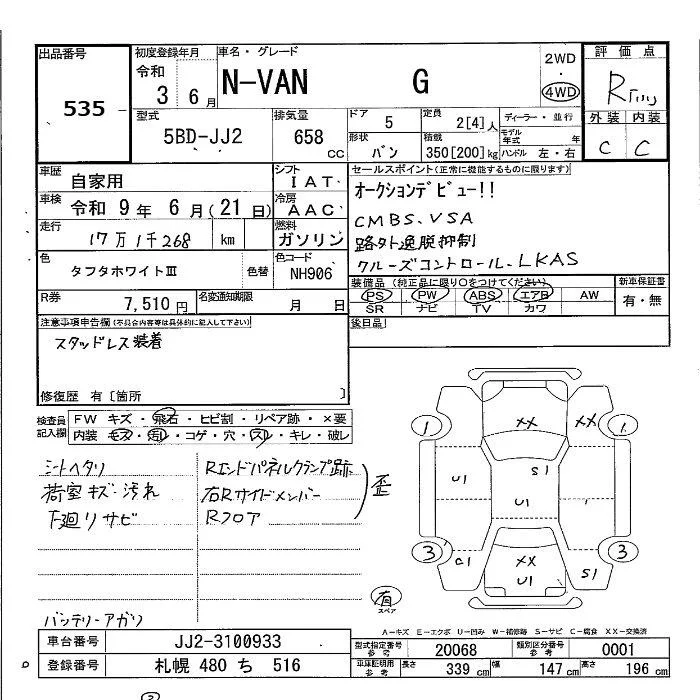 出品番号
535
初度登録年月
令和
3 6月
車名・グレード
N-VAN G
2WD
・
4WD
評価点
R
外装 内装
C C
型式
5BD-JJ2
排気量
658
cc
ドア
5
形状
バン
定員
2[4]人
積載
350[200]kg
ディーラー・並行
モデル
年式 年
ハンドル 左・右
車歴
自家用
シフト
IAT
車検 令和 9年 6月(21日)
冷房
AAC
走行
17万1千268 km
燃料
ガソリン
色
タフタホワイトⅢ
色替
色コード
NH906
セールスポイント(正常に機能するものに限ります)
オークションデビュー!!
CMBS.VSA
路外逸脱抑制
クルーズコントロール.LKAS
装備品(純正品に限り○をつけてください)
PS PW ABS エアB AW
SR ナビ TV カワ
新車保証書
有・無
R券
7,510円
名変通知期限
月 日
後日品
注意事項申告欄(不具合内容等は具体的に記入して下さい)
スタッドレス装着
修復歴 有[箇所 ]
検査員
記入欄
FW キズ・飛石・ヒビ割・リペア跡・×要
内装 モズ・汚レ・コゲ・穴・スレ・キレ・破レ
シートヘタリ
荷室キズ汚れ
下廻りサビ
Rエンドパネルクランプ跡
右Rサイドメンバー
Rフロア
歪
バッテリーアガリ
1 XX XX 1
U1 S1
U1 1
3 C1 XX U1 S1 3
有
スペア
A-キズ E-エクボ U-凹み W-補修跡 S-サビ C-腐食 XX-交換済
車台番号
JJ2-3100933
登録番号
札幌 480 ち 516
型式指定番号
参考
20068
類別区分番号
参考
0001
車庫証明用
参考
長さ 339cm
幅 147cm
高さ 196cm